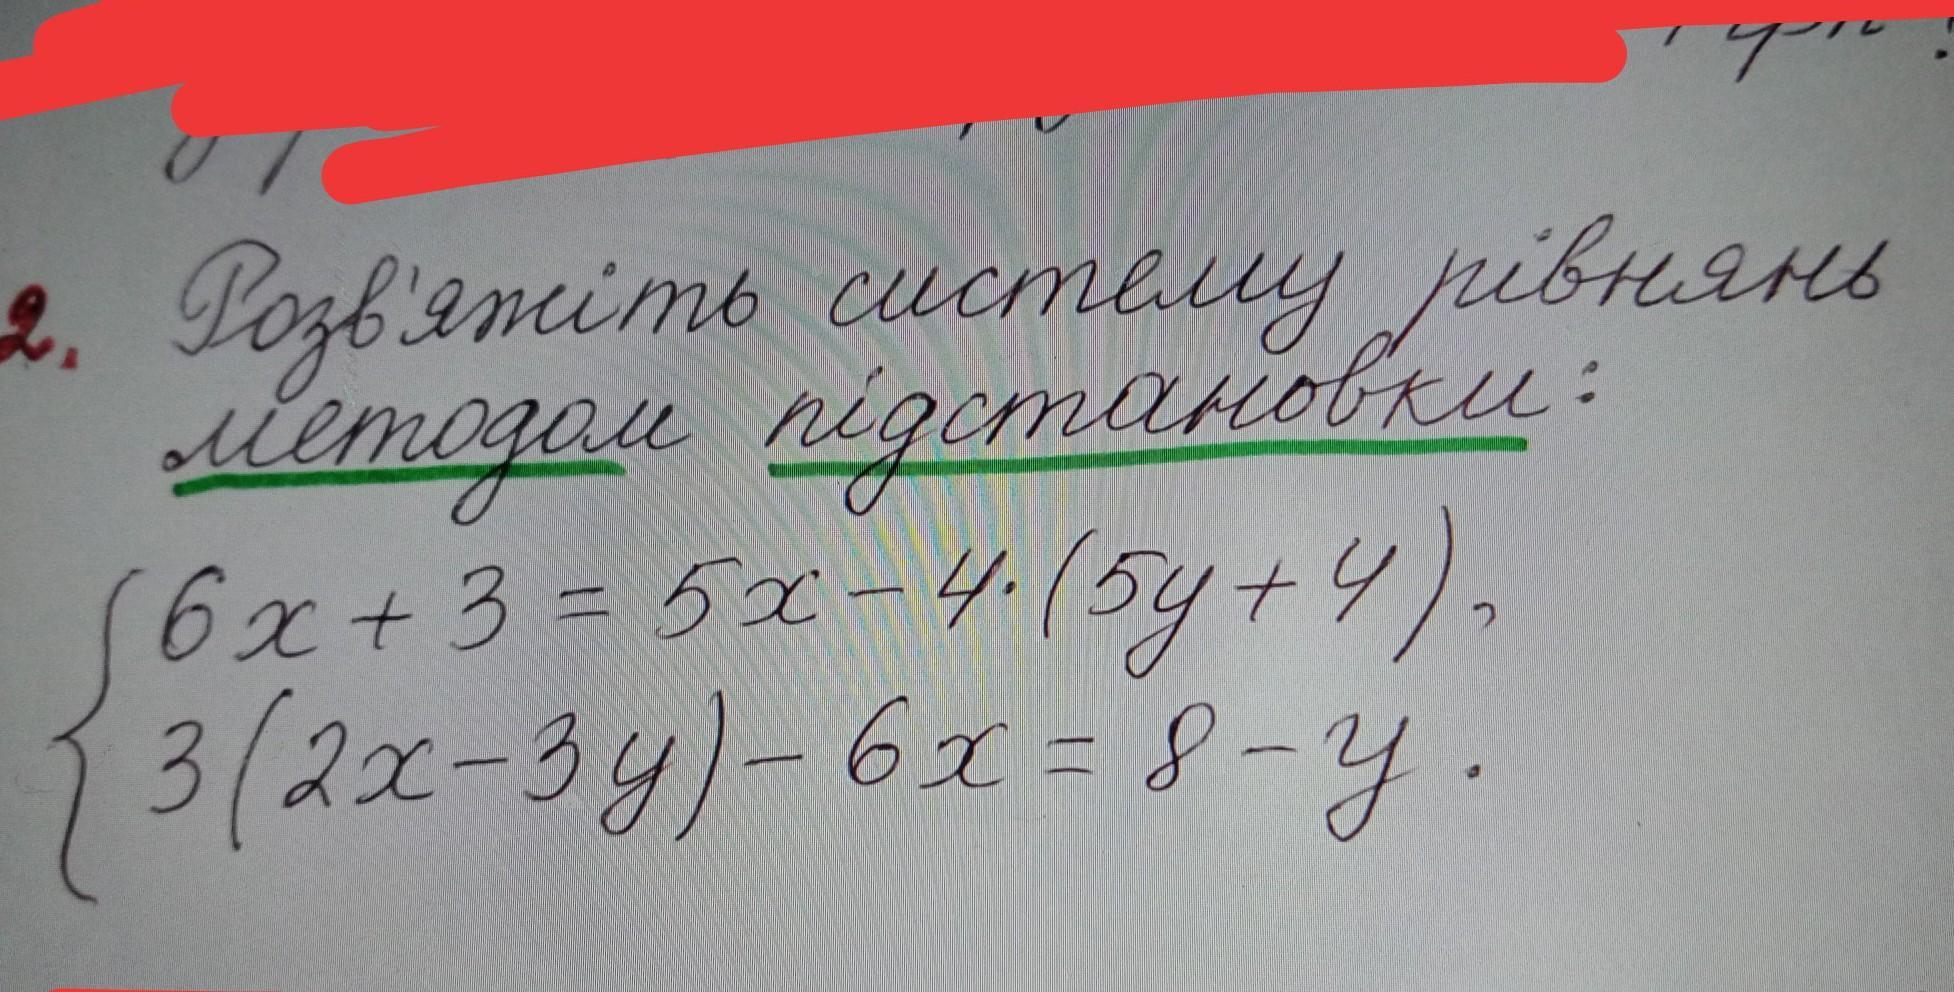 2. Розв'яжіть систему рівнянь
методом підстановки:
6x + 3 = 5x - 4·(5y + 4),
3(2x - 3y) - 6x = 8 - y.